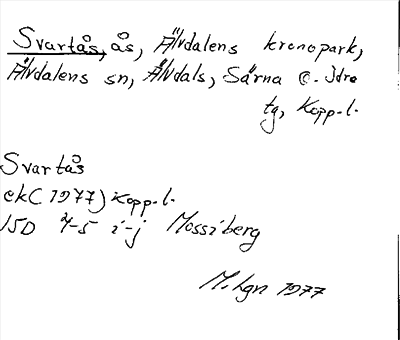 Svartås, ås, Älvdalens kronopark,
Älvdalens sn, Älvdals, Särna o. Idre
tg, Kopp.l.
Svartås
ek (1977) Kopp.l.
15D 4-5 i-j Mossiberg
M. Lgn 1977